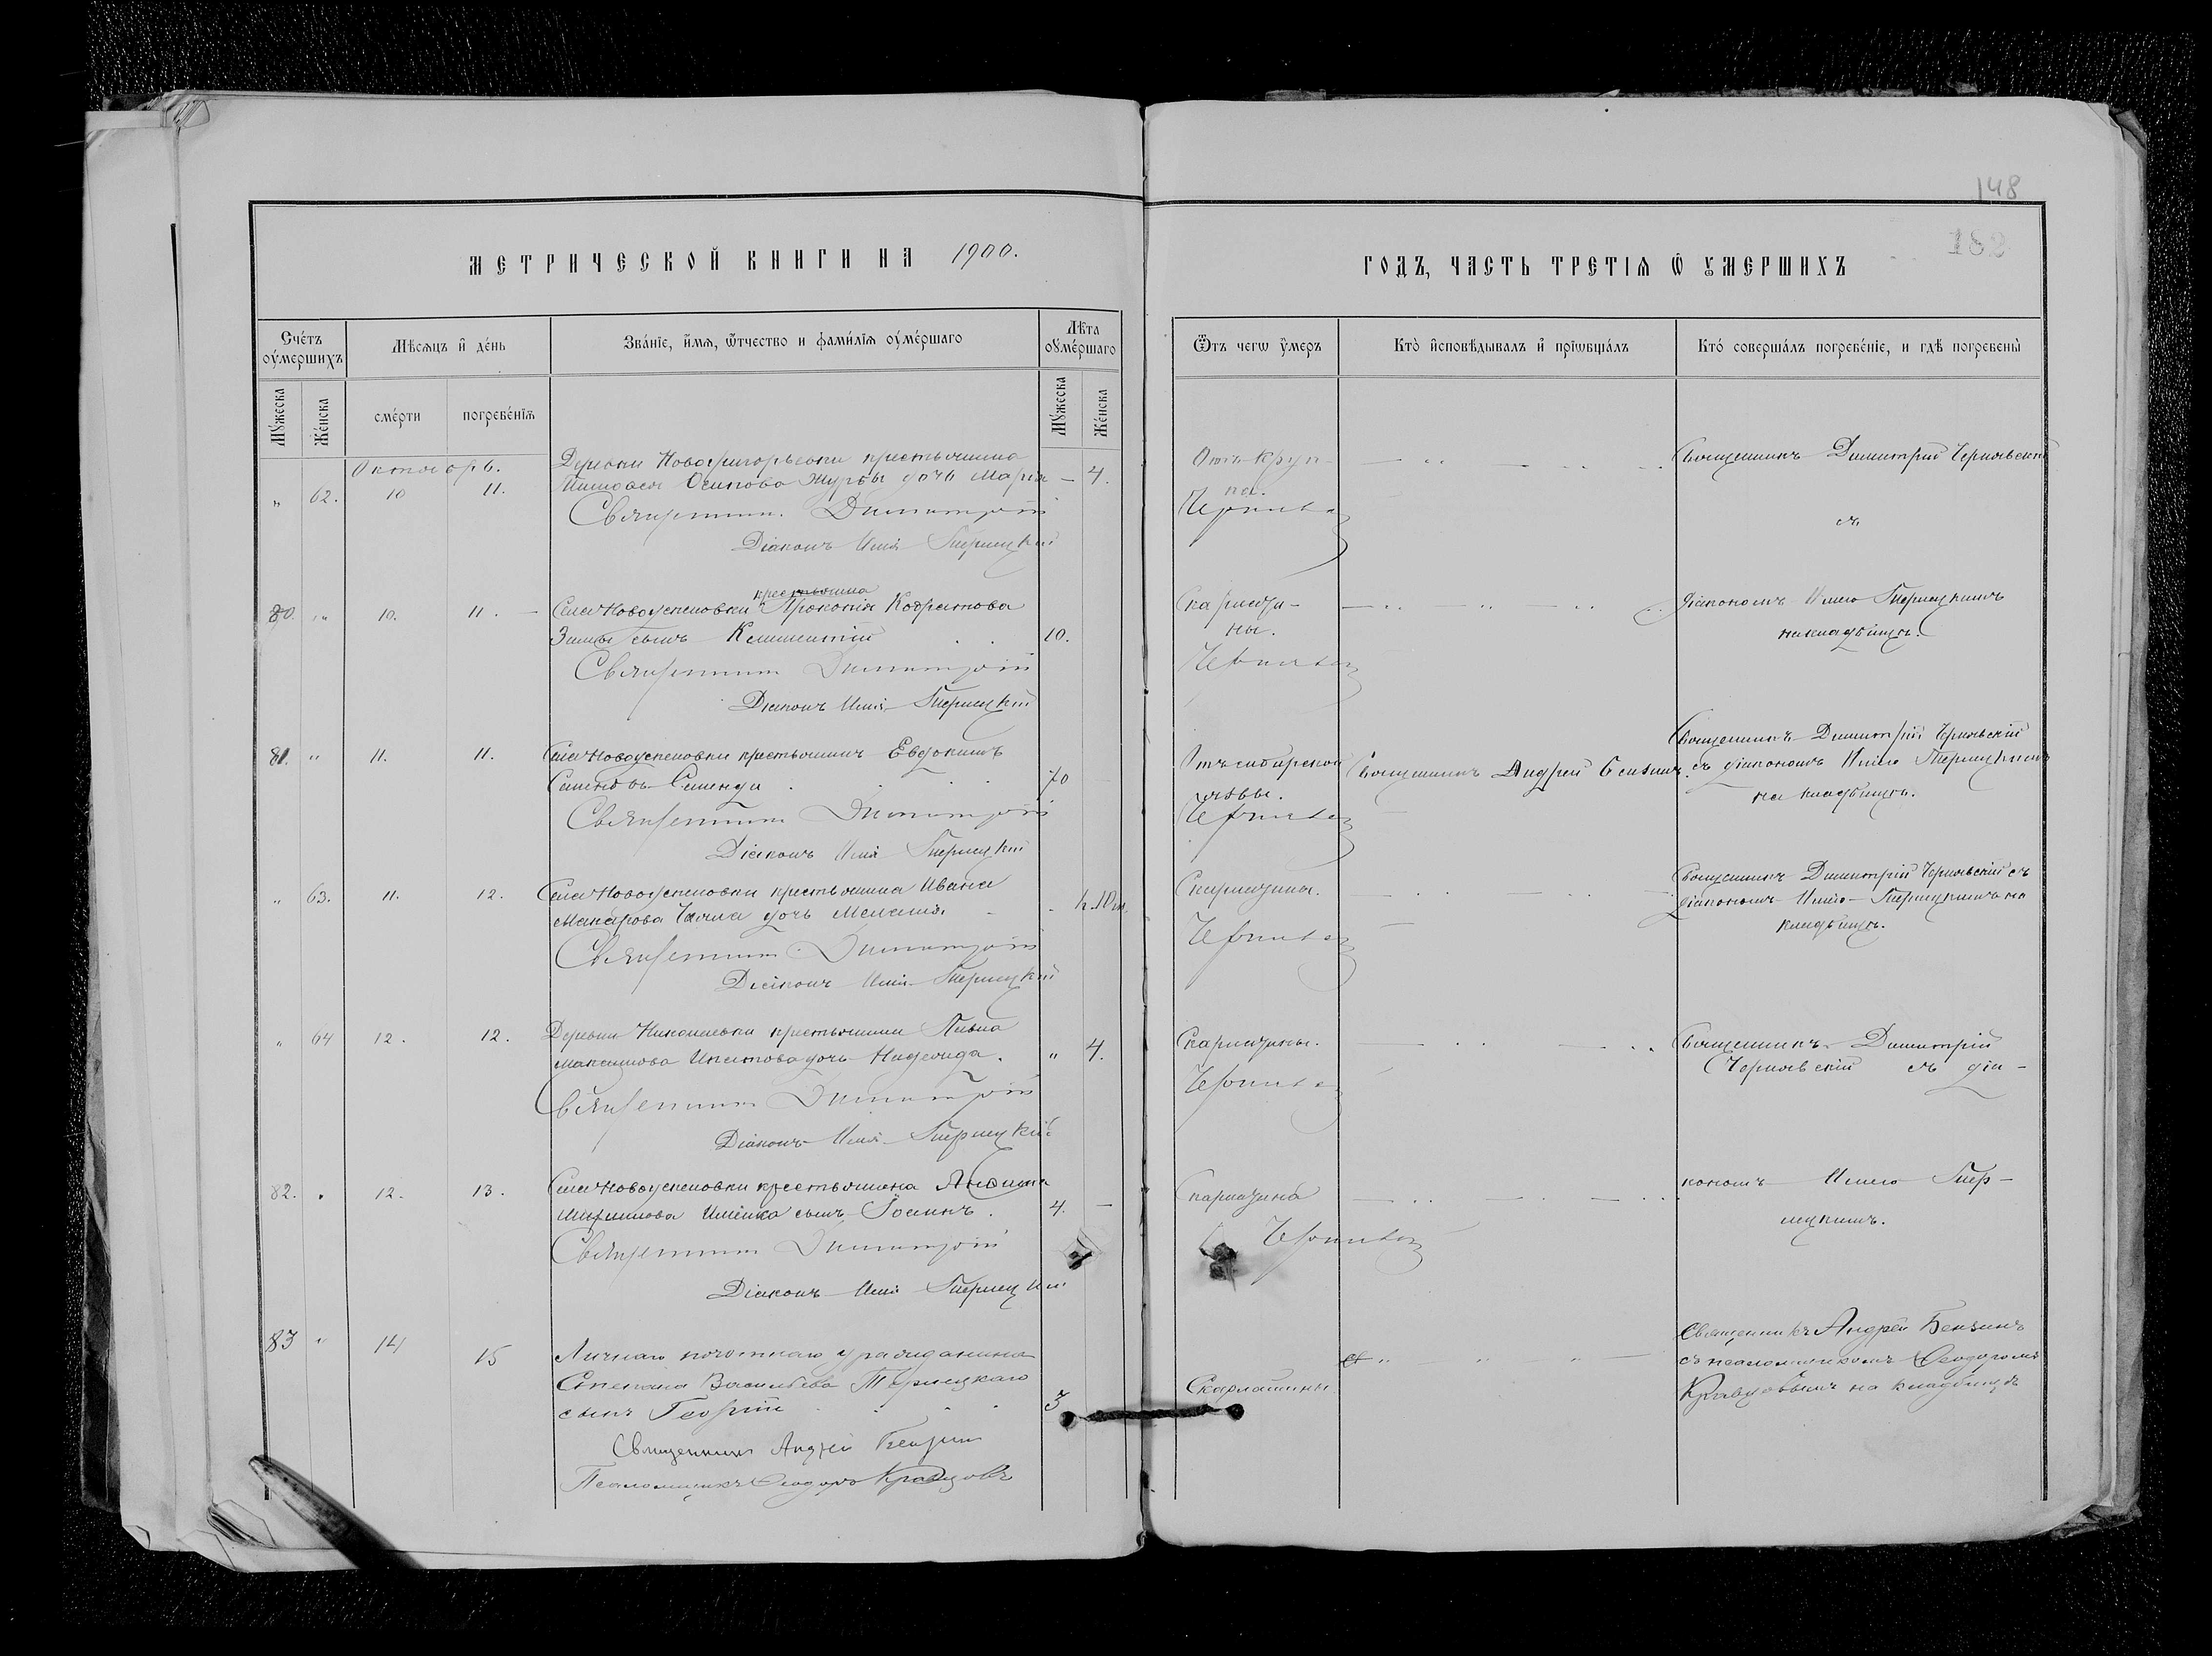 148
182
МЕТРИЧЕСКОЙ КНИГИ НА 1900.
ГОДЪ, ЧАСТЬ ТРЕТІѦ Ѿ УМЕРШИХЪ
Сче́тъ оу́мершихъ
Мѣсѧцъ и де́нь
Зва́нїе, и́мѧ, ѻ҆́тчество и фами́лїѧ оу́ме́ршаго
Лѣ́та оу́ме́ршаго
Ѿ чегѡ у́меръ
Кто̀ и҆сповѣ́дывалъ и҆ прїѡбща́лъ
Кто́ соверша́лъ погребе́нїе, и гдѣ̀ погребены̀
Му́жеска
Же́нска
сме́рти
погребе́нїѧ
Му́жеска
Же́нска
Октябрь.
" 62. 10 11.
Деревни Новогригорьевки крестьянина
Осипова Журбы дочь Марія — 4.
Священник Димитрій
Діаконъ Илія Терлецкій
Отъ крупа.
Черняв
Священникъ Димитрій Чернявскій
съ
80. " 10. 11.
крестьянина
Села Новоуспеновки Прокопія
Зимы сынъ Климентій 10.
Священник Димитрій
Діаконъ Илія Терлецкій
Скарлатины.
діакономъ Иліею Терлецкимъ
на кладбищѣ.
81. " 11. 11.
Села Новоуспеновки крестьянинъ Евдокимъ
70
Священник Димитрій
Діаконъ Илія Терлецкій
Отъ сибирской
язвы.
Священникъ Андрей Бензинъ.
Священникъ Димитрій Чернявскій
съ діакономъ Иліею Терлецкимъ
на кладбищѣ.
" 63. 11. 12.
Села Новоуспеновки крестьянина Ивана
Макарова дочь Меланія.
Священник Димитрій
Діаконъ Илія Терлецкій
Скарлатины.
Священникъ Димитрій Чернявскій съ
діакономъ Иліею Терлецкимъ на
кладбищѣ.
" 64 12. 12.
Деревни Николаевки крестьянина Павла
Максимова Ипатова дочь Надежда. " 4.
Священник Димитрій
Діаконъ Илія Терлецкій
Скарлатины.
Священникъ Димитрій
Чернявскій съ діа-
82. " 12. 13.
Села Новоуспеновки крестьянина
сынъ Іоаннъ. 4. —
Священник Димитрій
Діаконъ Илія Терлецкій
Скарлатина
кономъ Иліею Тер-
лецкимъ.
83 " 14 15
Личнаго почотнаго гражданина
Степана Васильева Терлецкаго
сынъ Георгій 3
Священникъ Андрей Бензин
Псаломщикъ Ѳеодоръ Кравцовъ
Скарлатины
Священникъ Андрей Бензинъ
съ псаломщикомъ Ѳеодоромъ
Кравцовымъ на кладбищѣ